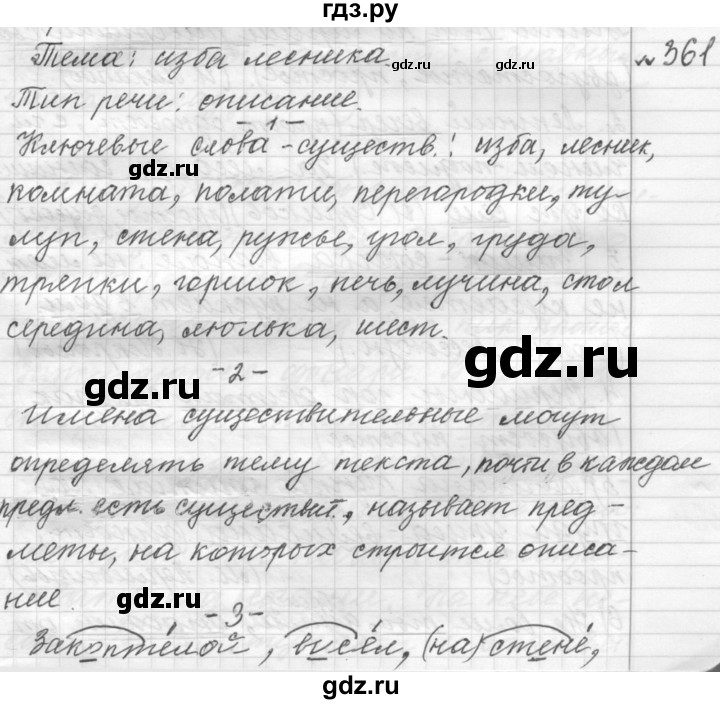 гдз.ру
Тема: изба лесника. №361
gdz.ru gdz.ru
Тип речи: описание.
-1-
Ключевые слова-существ.: изба, лесник,
gdz.ru
комната, полати, перегородки, ту-
луп, стена, ружье, угол, груда,
тряпки, горшок, печь, лучина, стол
середина, люлька, шест.
gdz.ru
-2-
gdz.ru
Имена существительные могут
определять тему текста, почти в каждом
предл. есть существит., называет пред-
меты, на которых строится описа-
ние.
gdz.ru
-3-
Закоптелой, висел, (на) стене,
gdz.ru gdz.ru